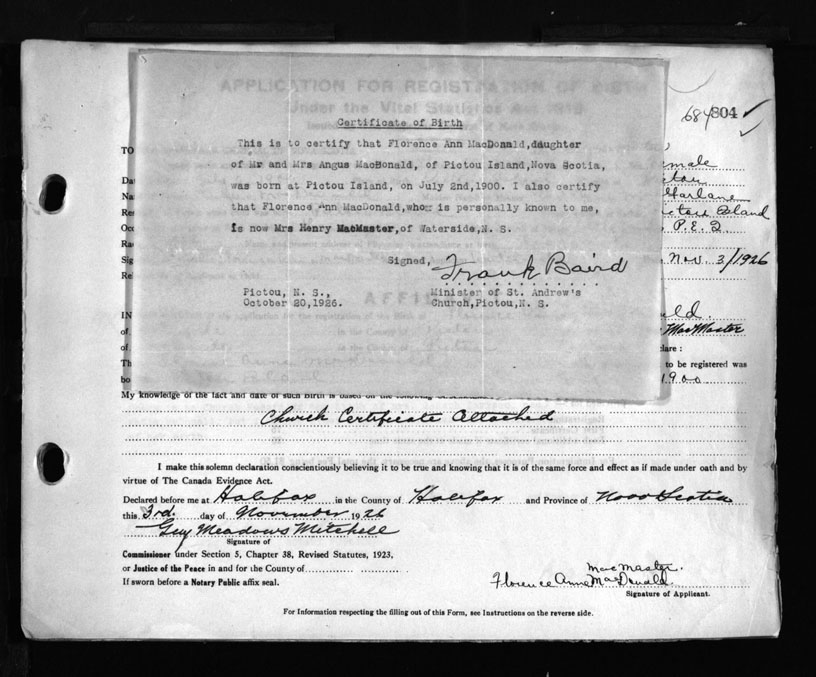 APPLICATION FOR REGISTRATION OF BIRTH
Under the Vital Statistics Act
684 804
Certificate of Birth
This is to certify that Florence Ann MacDonald, daughter
of Mr and Mrs Angus MacDonald, of Pictou Island, Nova Scotia,
was born at Pictou Island, on July 2nd, 1900. I also certify
that Florence Ann MacDonald, who is personally known to me,
is now Mrs Henry MacMaster, of Waterside, N. S.
Signed, Frank Baird
Pictou, N. S., Minister of St. Andrew's
October 20, 1926. Church, Pictou, N. S.
TO
Island
P.E.I
Nov 3/1926
MacMaster
to be registered was
1900
My knowledge of the fact and date of such birth is based on the following
Church Certificate Attached
I make this solemn declaration conscientiously believing it to be true and knowing that it is of the same force and effect as if made under oath and by
virtue of The Canada Evidence Act.
Declared before me at Halifax in the County of Halifax and Province of Nova Scotia
this 3rd. day of November 1926
Guy Meadows Mitchell
Signature of
Commissioner under Section 5, Chapter 38, Revised Statutes, 1923,
or Justice of the Peace in and for the County of
If sworn before a Notary Public affix seal.
MacMaster.
Florence Anne MacDonald.
Signature of Applicant.
For Information respecting the filling out of this Form, see Instructions on the reverse side.